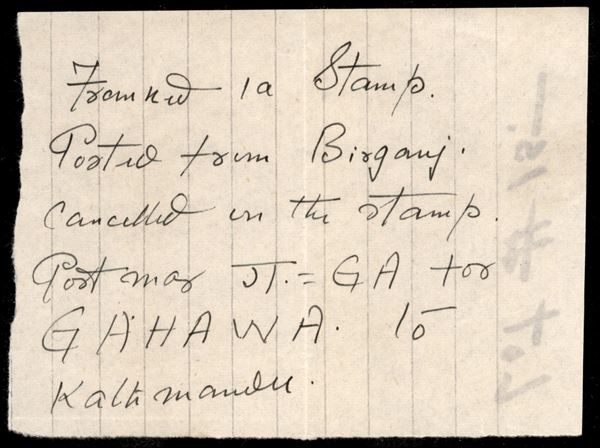 Franked 1a Stamp.
Posted from Birganj.
Cancelled on the stamp.
Post mar = GA for
GAHAWA. to
Kathmandu.
Lot #